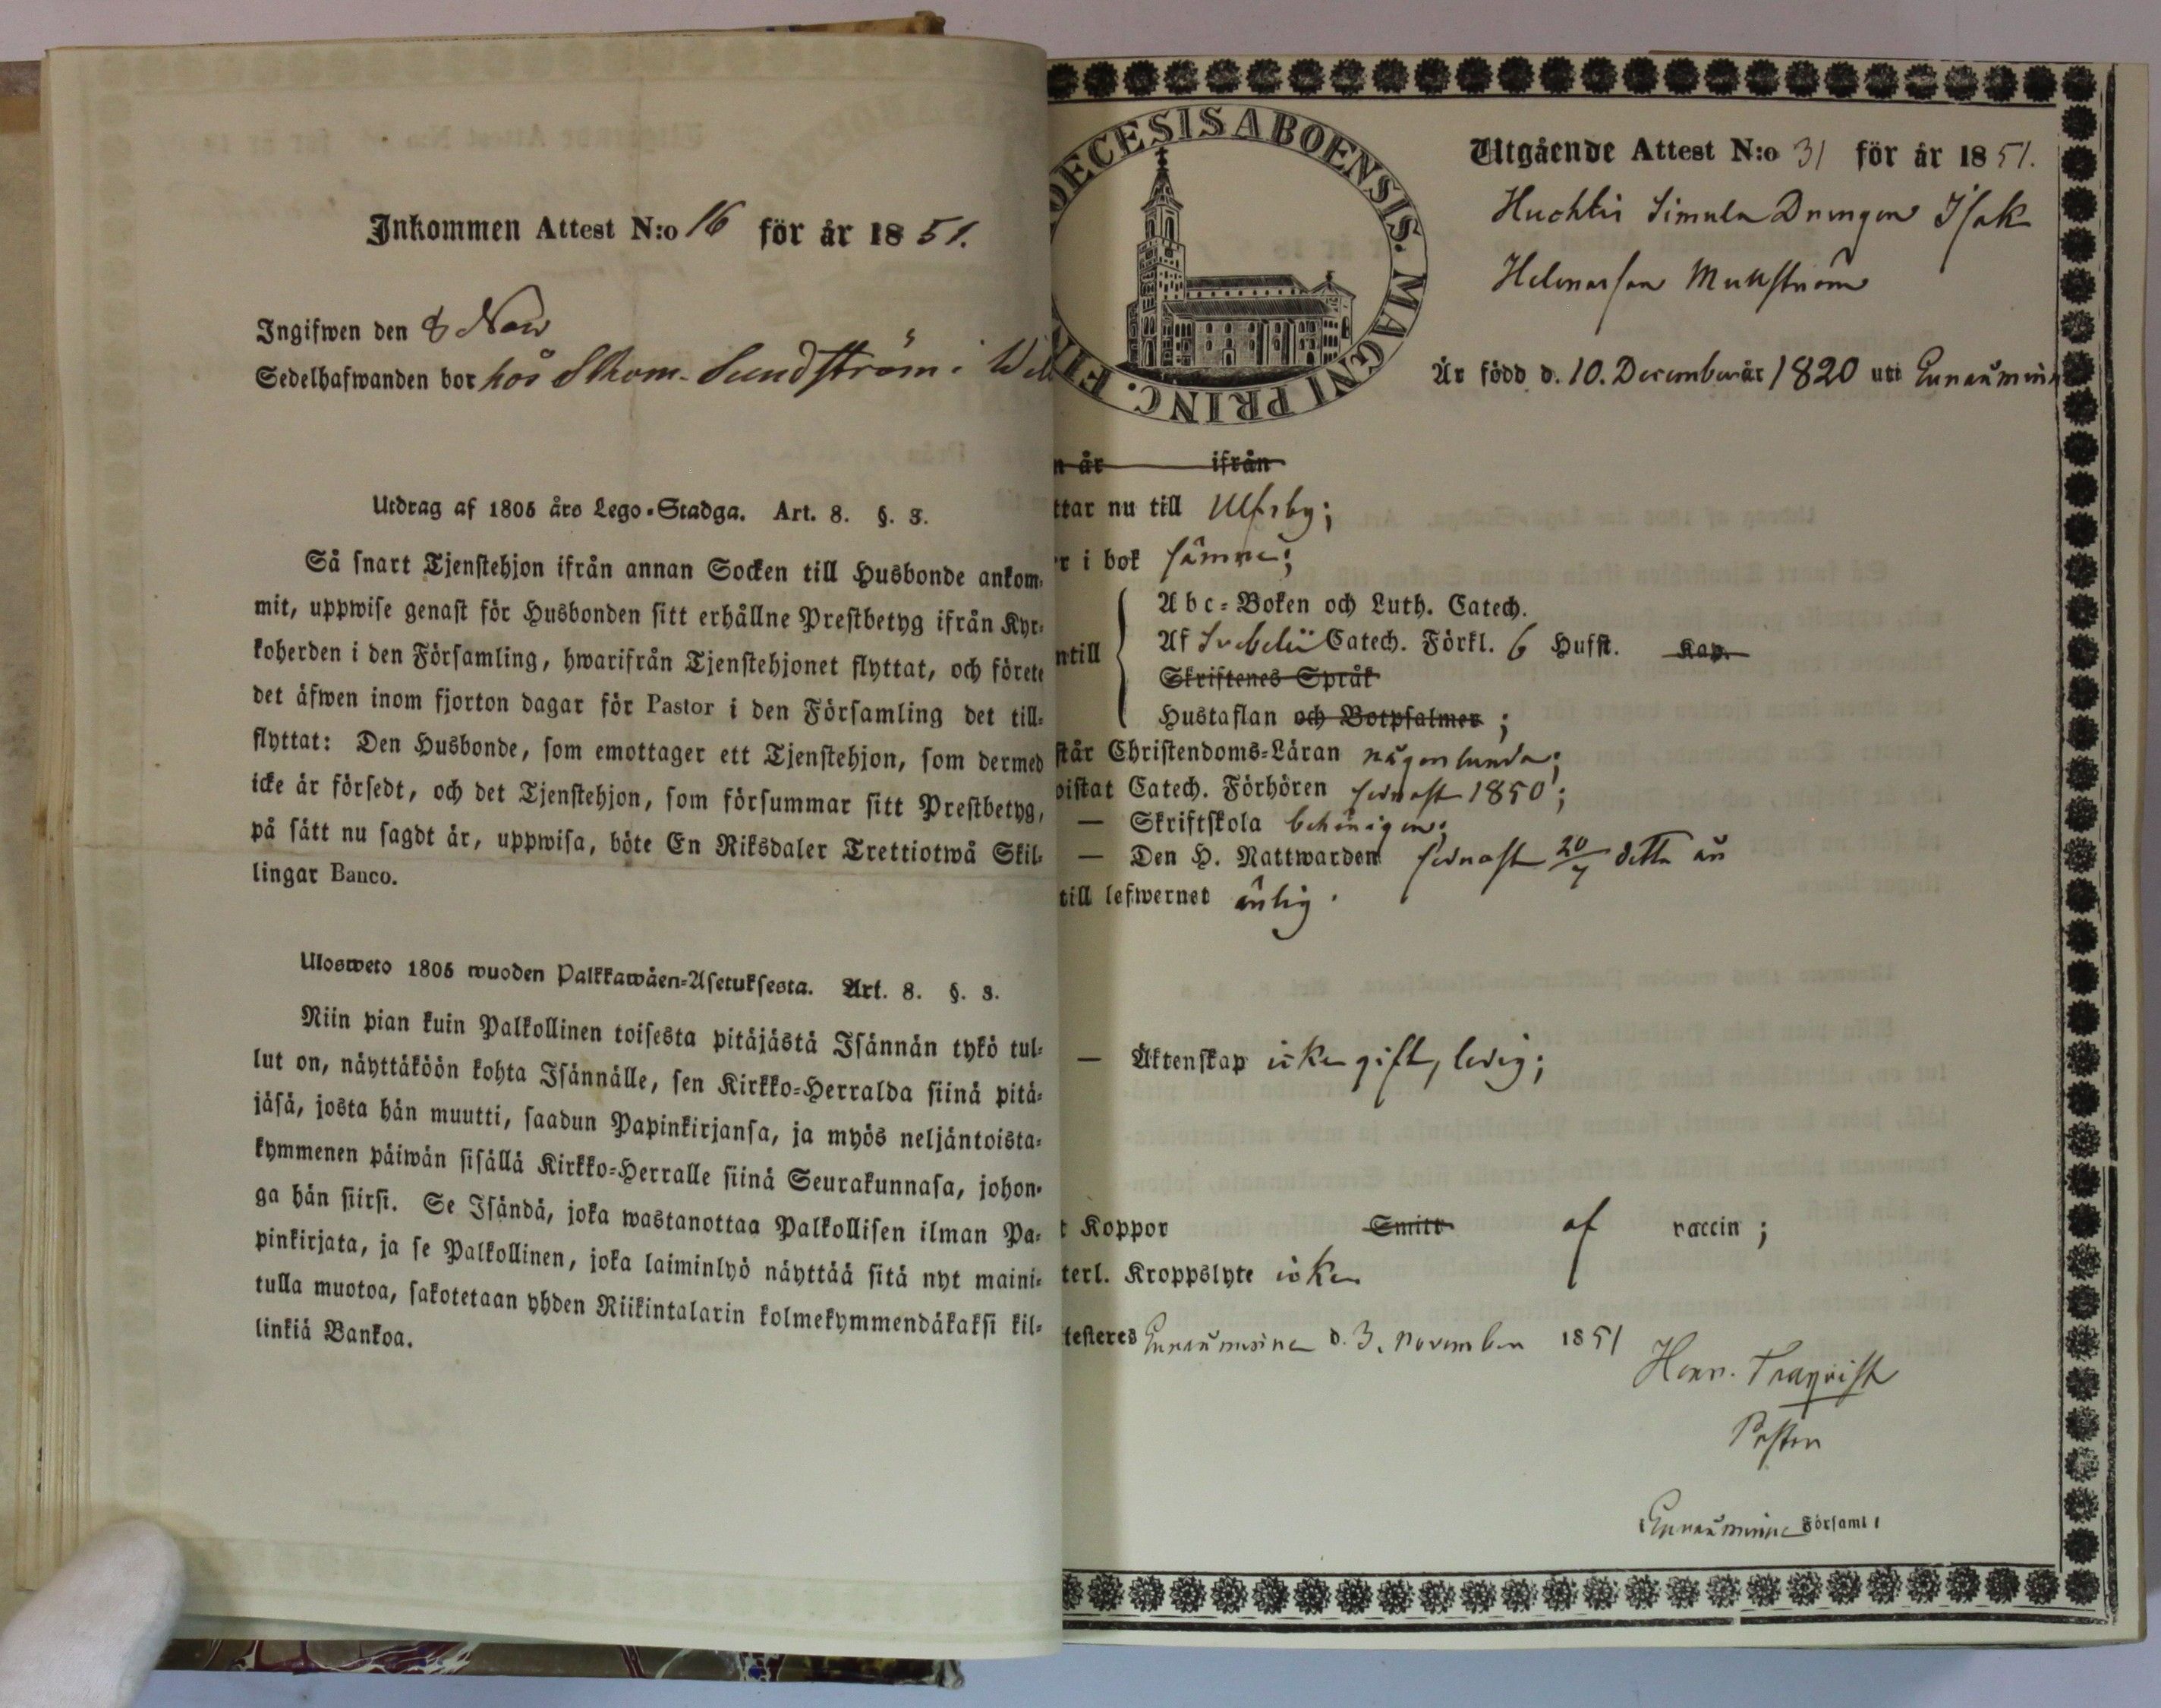 Inkommen Attest N:o 16 för år 1851.
Ingifwen den 8 Nov
Sedelhafwanden bor hos Skom. Sundström i
Utdrag af 1805 års Lego-Stadga. Art. 8. §. 3.
Så snart Tjenstehjon ifrån annan Socken till Husbonde ankom-
mit, uppwise genast för Husbonden sitt erhållne Prestbetyg ifrån Kyr-
koherden i den Församling, hwarifrån Tjenstehjonet flyttat, och förete
det äfwen inom fjorton dagar för Pastor i den Församling det till-
flyttat: Den Husbonde, som emottager ett Tjenstehjon, som dermed
icke är försedt, och det Tjenstehjon, som försummar sitt Prestbetyg,
på sätt nu sagdt är, uppwisa, böte En Riksdaler Trettiotwå Skil-
lingar Banco.
Ulosweto 1805 wuoden Palkkawäen-Asetuksesta. Art. 8. §. 3.
Niin pian kuin Palkollinen toisesta pitäjästä Isännän tykö tul-
lut on, näyttäköön kohta Isännälle, sen Kirkko-Herralda siinä pitä-
jäsä, josta hän muutti, saadun Papinkirjansa, ja myös neljäntoista-
kymmenen päiwän sisällä Kirkko-Herralle siinä Seurakunnasa, johon-
ga hän siirsi. Se Isändä, joka wastanottaa Palkollisen ilman Pa-
pinkirjata, ja se Palkollinen, joka laiminlyö näyttää sitä nyt maini-
tulla muotoa, sakotetaan yhden Riikintalarin kolmekymmendäkaksi kil-
linkiä Bankoa.
DECESIS ABOENSIS. MAGNI PRINC. FIN
Utgående Attest N:o 31 för år 1851.
Huchtis Simula Drengen Isak
Helenasson
Är född d. 10. December år 1820 uti Eurauminne
n år ifrån
ttar nu till Ulfsby;
r i bok sämre;
Abc-Boken och Luth. Catech.
ntill Af Svebelii Catech. Förkl. 6 Hufst. Kap.
Skriftenes Språk
Hustaflan och Botpsalmer ;
står Christendoms-Läran någorlunda;
vistat Catech. Förhören sednast 1850;
— Skriftskola behörigen;
— Den H. Nattwarden sednast 20/7 detta år
till lefwernet ärlig.
— Äktenskap icke gift, ledig;
t Koppor Smitt af vaccin ;
terl. Kroppslyte icke
testeres Eurauminne d. 3. November 1851
Henr. Traqvist
Pastor
i Eurauminne Församl